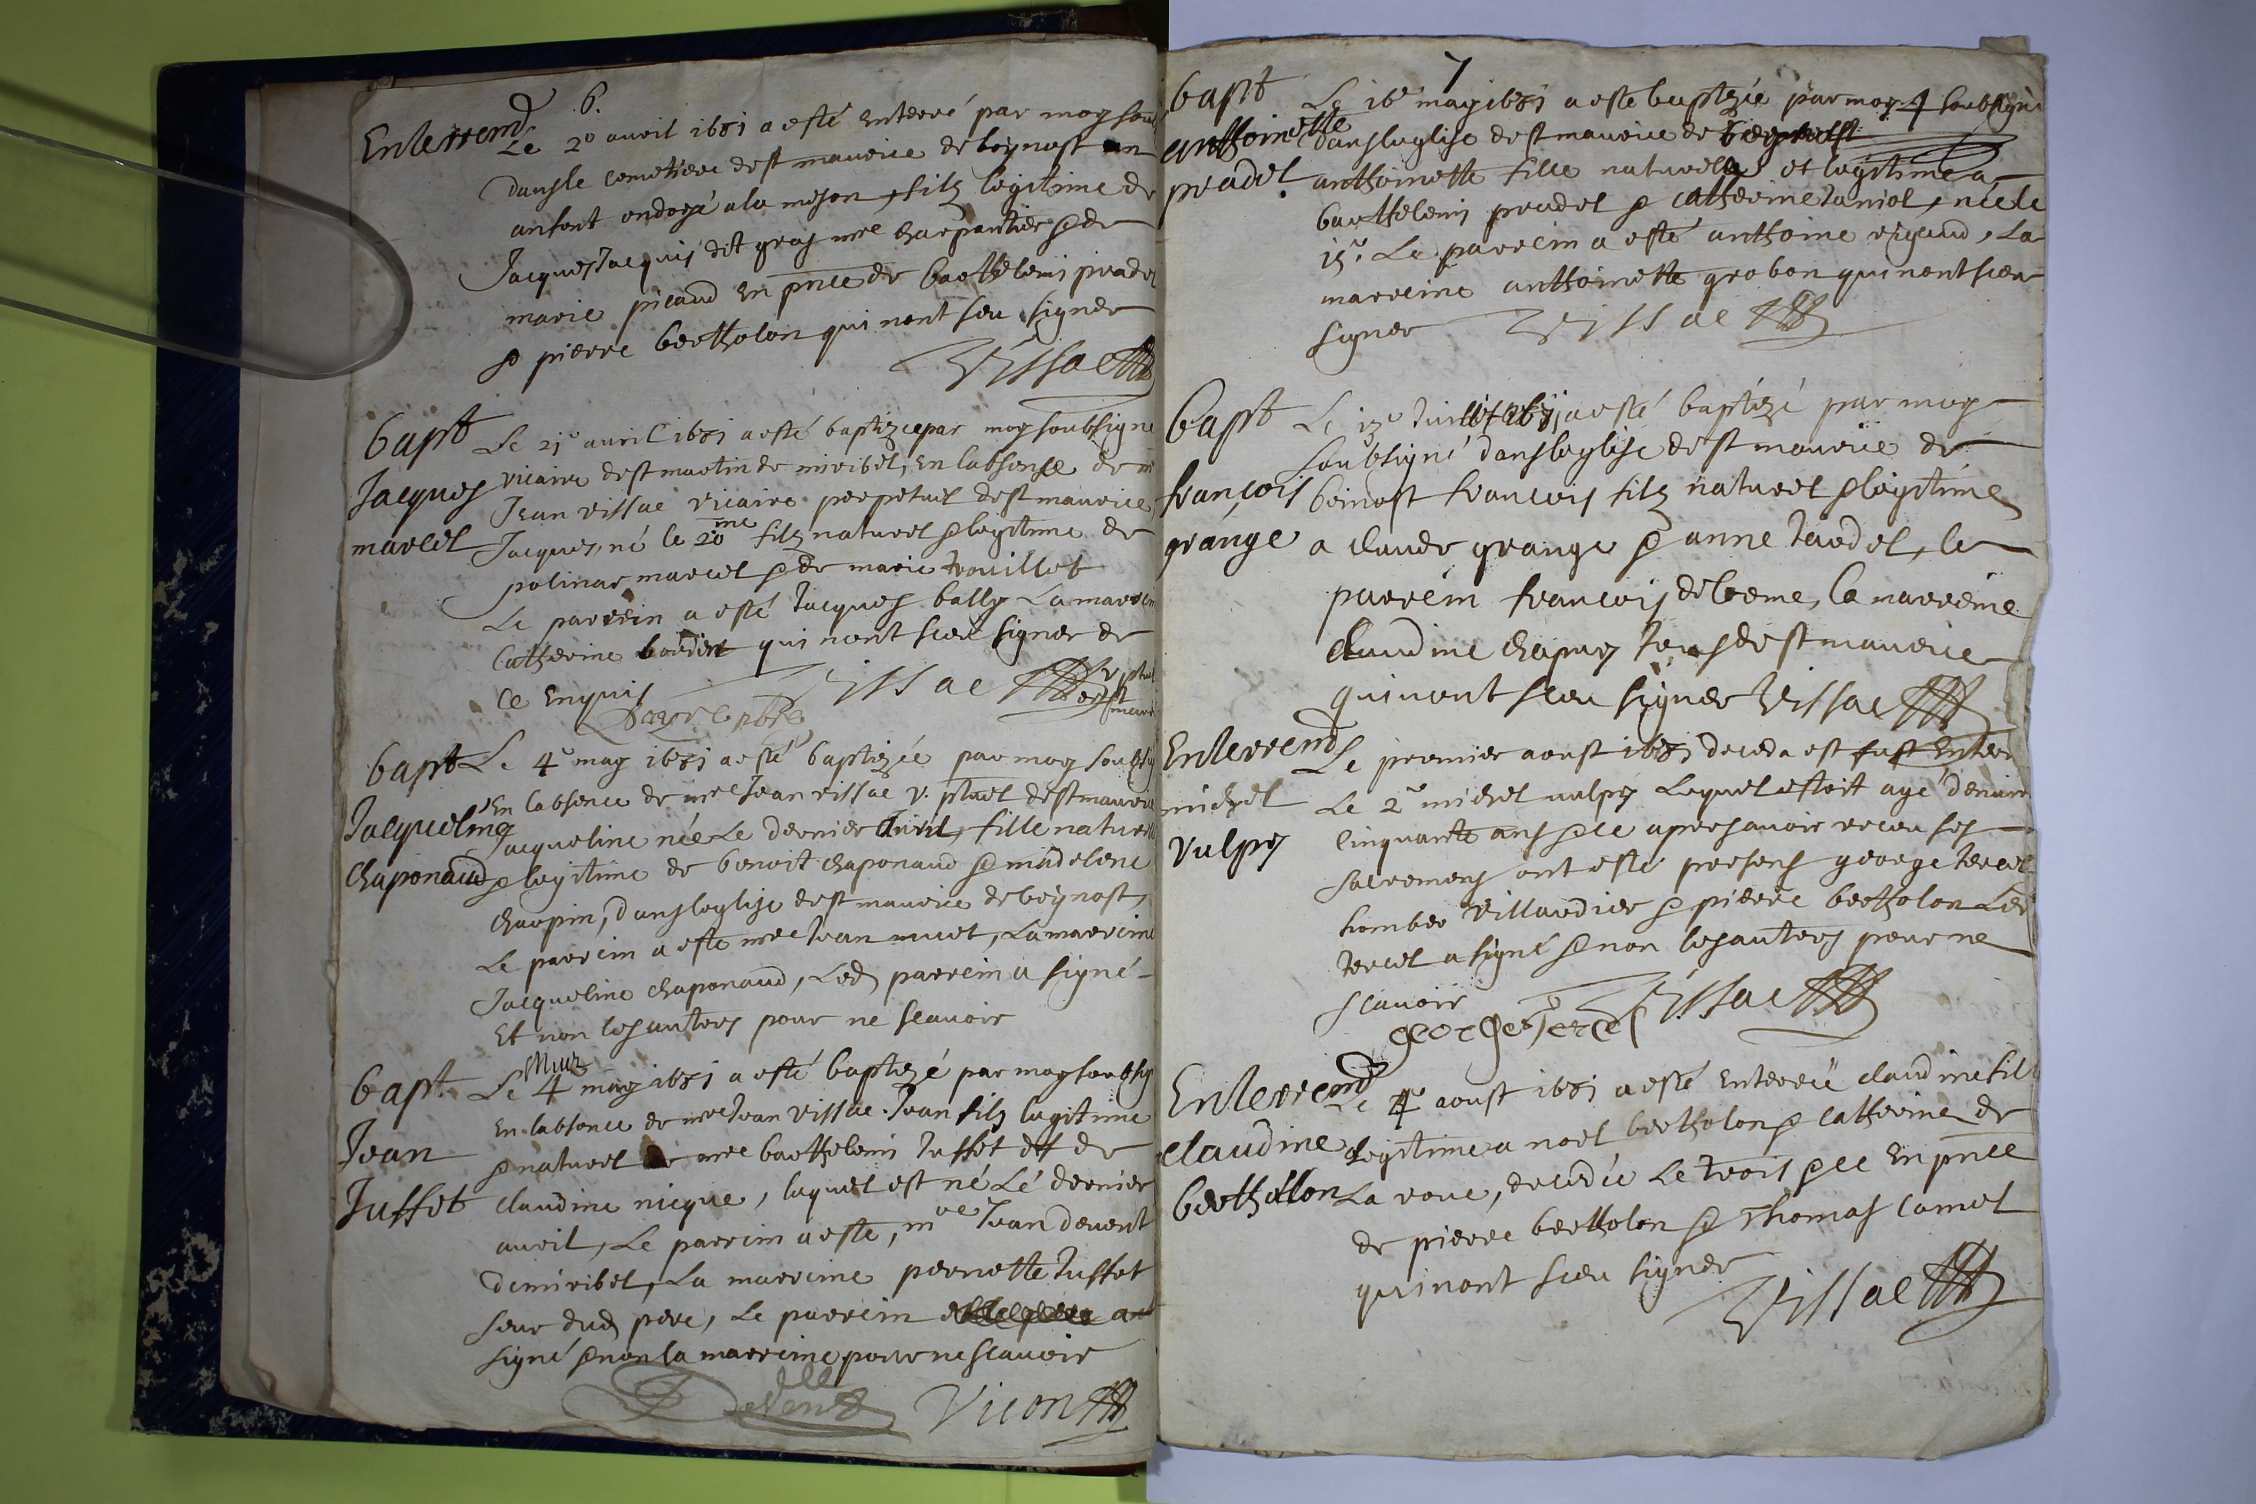 6.
Enterremt
Le 20 avril 1681 a esté Enterré par moy soub
dans le cemetiere de st maurice de beynost un
anfent ondoyé a la meson, filz legitime de
Jacques Jacquis dit gras mre charpantier & de
marie picaud En pnce de barthelemi pradel
& pierre bertholon qui nont sceu signer
Vissac
bapt
Jacques
marcel
Le 21e avril 1681 a esté baptizee par moy soubsigne
vicaire de st martin de miribel, En labsence de mr
Jean vissac vicaire perpetuel de st maurice
Jacques, né le 20me filz naturel & legitime de
polinar marcel & de marie trouillet
Le parrein a esté Jacques bally La marrein
Catherine qui nont sceu signer de
ce Enquis
Vissac v. ptuel
de st mauri
bapt
Jacqueline
Chaponaud
Le 4e may 1681 a esté baptizée par moy soubsig
En labsence de mre Jean vissac v. ptuel de st maurice
Jacqueline née Le dernier Avril, fille naturelle
& legitime de benoit chaponaud & madelene
charpin, dans leglise de st maurice de beynost,
Le parrein a este mre Jean muet, La marreine
Jacqueline chaponaud, Led parrein a signé
Et non les autres pour ne scavoir
Muet
bapt.
Jean
Juffet
Le 4e may 1681 a esté baptizé par moy soubsig
En labsence de mre Jean vissac. Jean filz legitime
& naturel de mre barthelemi Juffet et de
claudine nicque, lequel est né Le dernier
avril, Le parrein a este, mre Jean devent
de miribel, La marreine pernette Juffet
seur dud pere, Le parrein a
signé & non la marreine pour ne scavoir
Devent Vicon
7
bapt
anthoinette
pradel
Le 16e may 1681 a esté baptizée par moy soubsigné
dans leglise de st maurice de beynost
anthoinette fille naturelle et legitime a
barthelemi pradel & catherine Janiol, née le
15e. Le parrein a esté anthoine rigaud, La
marreine anthoinette grobon qui nont sceu
signer Vissac
bapt
françois
grange
Le 13e Juillet 1681 a esté baptizé par moy
soubsigné dans leglise de st maurice de
beinost francois filz naturel & legitime
a claude grange & anne tardel, le
parrein francois delorme, la marreine
claudine chapuy tous de st maurice
qui nont sceu signer Vissac
Enterremt
michel
vulpey
Le premier aoust 1681 deceda est fust Enterr
Le 2e michel vulpey Lequel estoit agé denvir
cinquante ans & ce apres avoir receu ses
sacremens ont esté presens george tercel
humber villardier & pierre bertholon Led
tercel a signé & non les autres pour ne
scavoir
george Tercel Vissac
Enterremt
claudine
berthollon
Le 4e aoust 1681 a esté Enterréé claudine fille
legitime a noel bertholon & catherine de
La roue, decedée Le trois & ce En pnce
de pierre bertholon & Thomas camel
qui nont sceu signer
Vissac